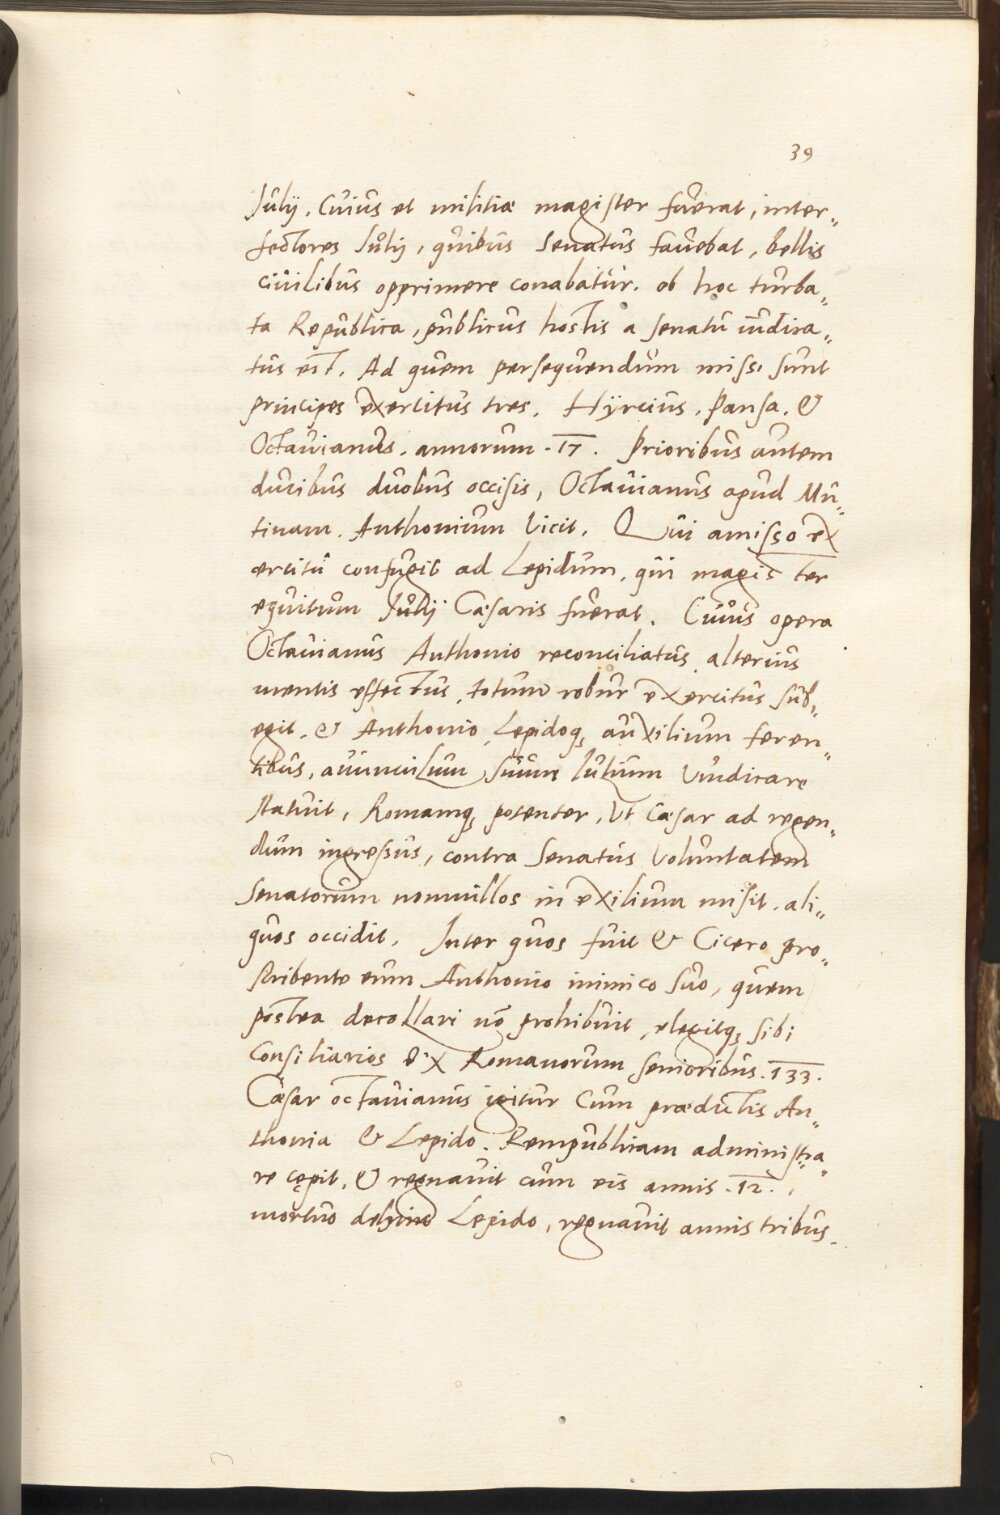 39
Julij. Cuius et militiæ magister fuerat, inter„
fectores Julij, quibus Senatus fauebat, bellis
ciuilibus opprimere conabatur. ob hoc turba„
ta Republica, publicus hostis a senatu iudica„
tus est. Ad quem persequendum missi sunt
principes exercitus tres. Hyrcius, Pansa. &
Octauianus. annorum .17. Prioribus autem
ducibus duobus occisis, Octauianus apud Mu„
tinam. Anthonium vicit. Qui amisso ex
ercitu confugit ad Lepidum, qui magis ter
equitum Julij Cæsaris fuerat. Cuius opera
Octauianus Anthonio reconciliatus alterius
mentis effectus, totum robur exercitus sub„
egit. & Anthonio, Lepidoq3 auxilium feren„
tibus, auunculum suum Julium vindicare
statuit, Romamq3 potenter, vt Cæsar ad regen„
dum ingressus, contra Senatus voluntatem
Senatorum nonnullos in exilium misit. ali„
quos occidit. Inter quos fuit & Cicero pro„
scribente eum Anthonio inimico suo, quem
postea decollari nō prohibuit, elegitq3 sibi
Consiliarios ex Romanorum senioribus .133.
Cæsar octauianus igitur cum prædictis An„
thonia & Lepido. Rempublicam administra„
re cępit. & regnauit cum eis annis .12.
mortuo dehinc Lepido, regnauit annis tribus.